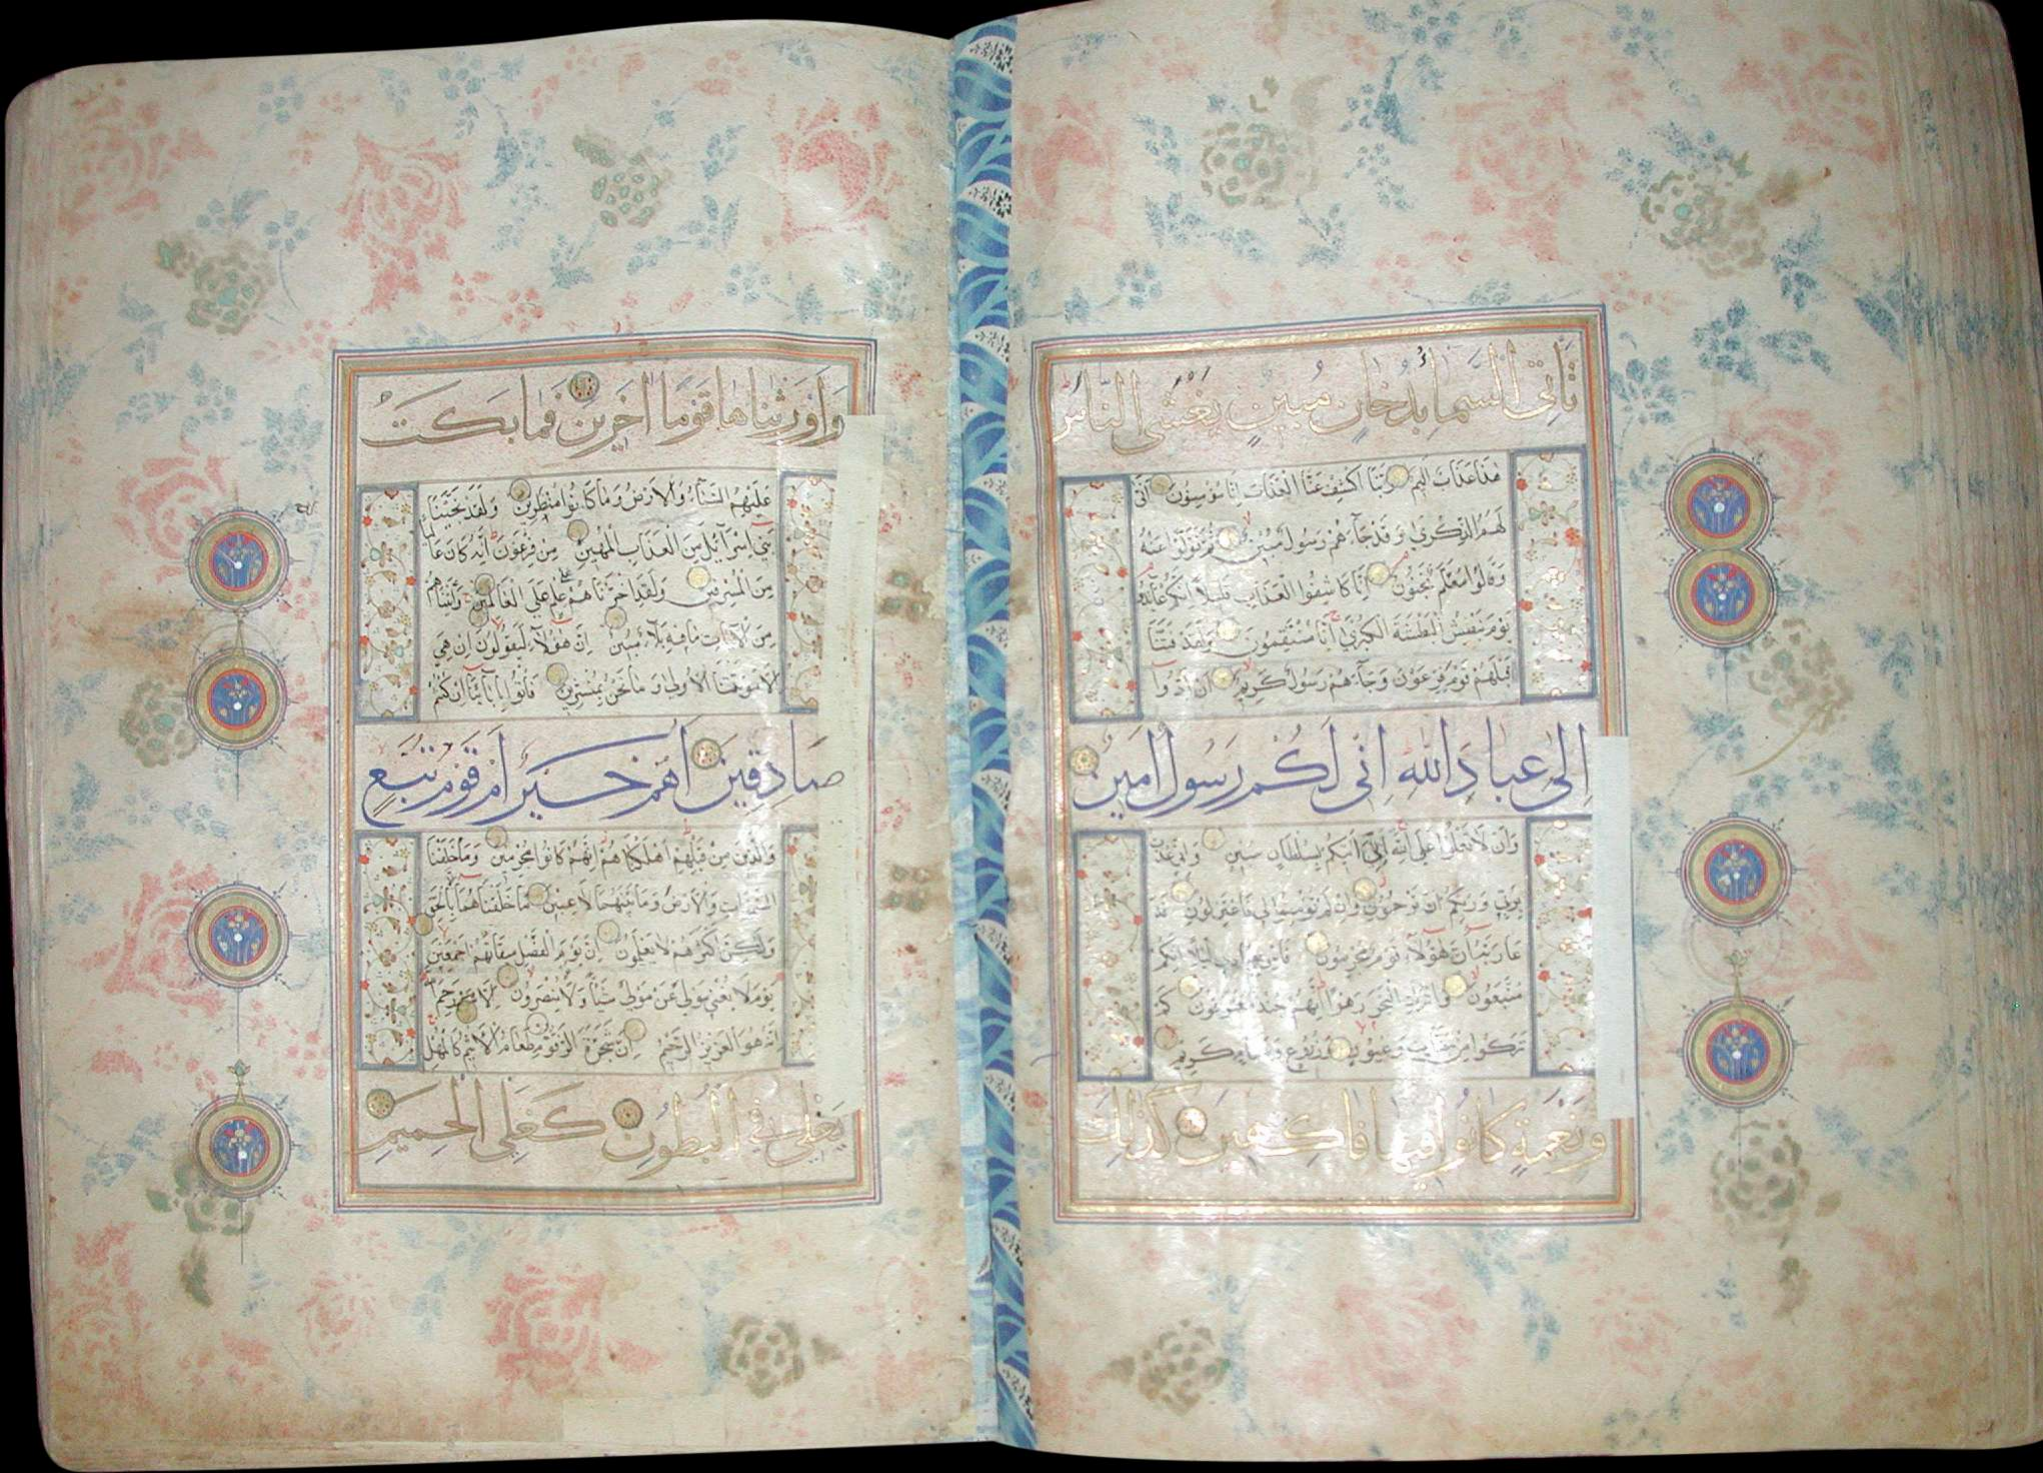 تَأتِي السَّمَاءُ بِدُخَانٍ مُبِينٍ يَغْشَى النَّاسَ
هٰذَا عَذَابٌ اَلِيمٌ رَبَّنَا اكْشِفْ عَنَّا الْعَذَابَ اِنَّا مُؤْمِنُونَ اَنّٰى
لَهُمُ الذِّكْرٰى وَقَدْ جَآءَهُمْ رَسُولٌ مُبِينٌ ثُمَّ تَوَلَّوْا عَنْهُ
وَقَالُوا مُعَلَّمٌ مَجْنُونٌ اِنَّا كَاشِفُوا الْعَذَابِ قَلِيلًا اِنَّكُمْ عَآئِدُونَ
يَوْمَ نَبْطِشُ الْبَطْشَةَ الْكُبْرٰى اِنَّا مُنْتَقِمُونَ وَلَقَدْ فَتَنَّا
قَبْلَهُمْ قَوْمَ فِرْعَوْنَ وَجَآءَهُمْ رَسُولٌ كَرِيمٌ اَنْ اَدُّوا
اِلَيَّ عِبَادَ اللهِ اِنِّي لَكُمْ رَسُولٌ اَمِينٌ
وَاَنْ لَا تَعْلُوا عَلَى اللهِ اِنِّي اٰتِيكُمْ بِسُلْطَانٍ مُبِينٍ وَاِنِّي عُذْتُ
بِرَبِّي وَرَبِّكُمْ اَنْ تَرْجُمُونِ وَاِنْ لَمْ تُؤْمِنُوا لِي فَاعْتَزِلُونِ فَدَ
عَا رَبَّهُ اَنَّ هٰؤُلَآءِ قَوْمٌ مُجْرِمُونَ فَاَسْرِ بِعِبَادِي لَيْلًا اِنَّكُمْ
مُتَّبَعُونَ وَاتْرُكِ الْبَحْرَ رَهْوًا اِنَّهُمْ جُنْدٌ مُغْرَقُونَ كَمْ
تَرَكُوا مِنْ جَنَّاتٍ وَعُيُونٍ وَزُرُوعٍ وَمَقَامٍ كَرِيمٍ
وَنَعْمَةٍ كَانُوا فِيهَا فَاكِهِينَ كَذٰلِكَ
وَاَوْرَثْنَاهَا قَوْمًا اٰخَرِينَ فَمَا بَكَتْ
عَلَيْهِمُ السَّمَآءُ وَالْاَرْضُ وَمَا كَانُوا مُنْظَرِينَ وَلَقَدْ نَجَّيْنَا
بَنِي اِسْرَآئِيلَ مِنَ الْعَذَابِ الْمُهِينِ مِنْ فِرْعَوْنَ اِنَّهُ كَانَ عَالِيًا
مِنَ الْمُسْرِفِينَ وَلَقَدِ اخْتَرْنَاهُمْ عَلٰى عِلْمٍ عَلَى الْعَالَمِينَ وَاٰتَيْنَاهُمْ
مِنَ الْاٰيَاتِ مَا فِيهِ بَلَآءٌ مُبِينٌ اِنَّ هٰؤُلَآءِ لَيَقُولُونَ اِنْ هِيَ
اِلَّا مَوْتَتُنَا الْاُولٰى وَمَا نَحْنُ بِمُنْشَرِينَ فَأْتُوا بِاٰبَآئِنَا اِنْ كُنْتُمْ
صَادِقِينَ اَهُمْ خَيْرٌ اَمْ قَوْمُ تُبَّعٍ
وَالَّذِينَ مِنْ قَبْلِهِمْ اَهْلَكْنَاهُمْ اِنَّهُمْ كَانُوا مُجْرِمِينَ وَمَا خَلَقْنَا
السَّمٰوَاتِ وَالْاَرْضَ وَمَا بَيْنَهُمَا لَاعِبِينَ مَا خَلَقْنَاهُمَا اِلَّا بِالْحَقِّ
وَلٰكِنَّ اَكْثَرَهُمْ لَا يَعْلَمُونَ اِنَّ يَوْمَ الْفَصْلِ مِيقَاتُهُمْ اَجْمَعِينَ
يَوْمَ لَا يُغْنِي مَوْلًى عَنْ مَوْلًى شَيْئًا وَلَا هُمْ يُنْصَرُونَ اِلَّا مَنْ رَحِمَ اللهُ
اِنَّهُ هُوَ الْعَزِيزُ الرَّحِيمُ اِنَّ شَجَرَةَ الزَّقُّومِ طَعَامُ الْاَثِيمِ كَالْمُهْلِ
يَغْلِي فِي الْبُطُونِ كَغَلْيِ الْحَمِيمِ